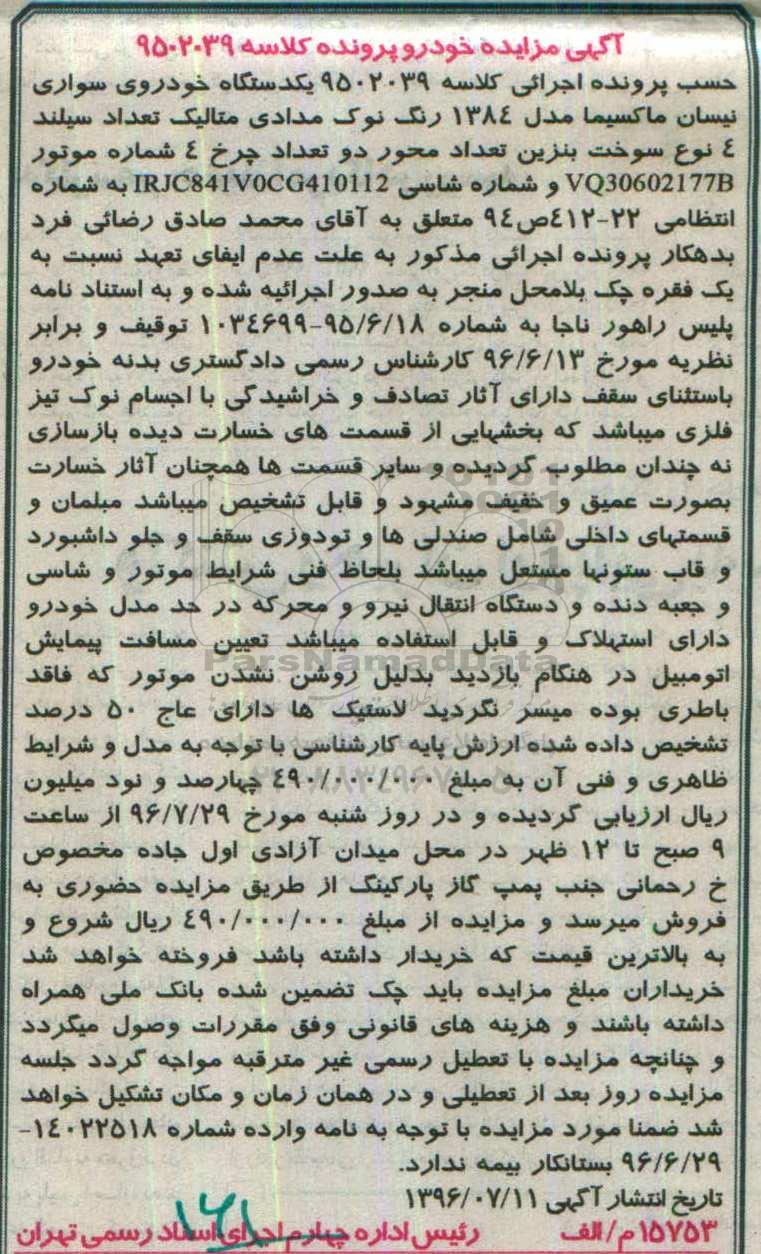 آگهی مزایده خودرو پرونده کلاسه ۹۵۰۲۰۳۹
حسب پرونده اجرائی کلاسه ۹۵۰۲۰۳۹ یکدستگاه خودروی سواری
نیسان ماکسیما مدل ۱۳۸٤ رنگ نوک مدادی متالیک تعداد سیلند
٤ نوع سوخت بنزین تعداد محور دو تعداد چرخ ٤ شماره موتور
VQ30602177B و شماره شاسی IRJC841V0CG410112 به شماره
انتظامی ۲۲-٤۱۲ص۹٤ متعلق به آقای محمد صادق رضائی فرد
بدهکار پرونده اجرائی مذکور به علت عدم ایفای تعهد نسبت به
یک فقره چک بلامحل منجر به صدور اجرائیه شده و به استناد نامه
پلیس راهور ناجا به شماره ۹۵/۶/۱۸-۱۰۳٤۶۹۹ توقیف و برابر
نظریه مورخ ۹۶/۶/۱۳ کارشناس رسمی دادگستری بدنه خودرو
باستثنای سقف دارای آثار تصادف و خراشیدگی با اجسام نوک تیز
فلزی میباشد که بخشهایی از قسمت های خسارت دیده بازسازی
نه چندان مطلوب گردیده و سایر قسمت ها همچنان آثار خسارت
بصورت عمیق و خفیف مشهود و قابل تشخیص میباشد مبلمان و
قسمتهای داخلی شامل صندلی ها و تودوزی سقف و جلو داشبورد
و قاب ستونها مستعل میباشد بلحاظ فنی شرایط موتور و شاسی
و جعبه دنده و دستگاه انتقال نیرو و محرکه در حد مدل خودرو
دارای استهلاک و قابل استفاده میباشد تعیین مسافت پیمایش
ParsNamadData
اتومبیل در هنگام بازدید بدلیل روشن نشدن موتور که فاقد
باطری بوده میسر نگردید لاستیک ها دارای عاج ۵۰ درصد
تشخیص داده شده ارزش پایه کارشناسی با توجه به مدل و شرایط
ظاهری و فنی آن به مبلغ ٤۹۰/۰۰۰/۰۰۰ چهارصد و نود میلیون
ریال ارزیابی گردیده و در روز شنبه مورخ ۹۶/۷/۲۹ از ساعت
۹ صبح تا ۱۲ ظهر در محل میدان آزادی اول جاده مخصوص
خ رحمانی جنب پمپ گاز پارکینگ از طریق مزایده حضوری به
فروش میرسد و مزایده از مبلغ ٤۹۰/۰۰۰/۰۰۰ ریال شروع و
به بالاترین قیمت که خریدار داشته باشد فروخته خواهد شد
خریداران مبلغ مزایده باید چک تضمین شده بانک ملی همراه
داشته باشند و هزینه های قانونی وفق مقررات وصول میگردد
و چنانچه مزایده با تعطیل رسمی غیر مترقبه مواجه گردد جلسه
مزایده روز بعد از تعطیلی و در همان زمان و مکان تشکیل خواهد
شد ضمنا مورد مزایده با توجه به نامه وارده شماره ۱٤۰۲۲۵۱۸-
۹۶/۶/۲۹ بستانکار بیمه ندارد.
تاریخ انتشار آگهی ۱۳۹۶/۰۷/۱۱
۱۵۷۵۳ م/الف رئیس اداره چهارم اجرای اسناد رسمی تهران